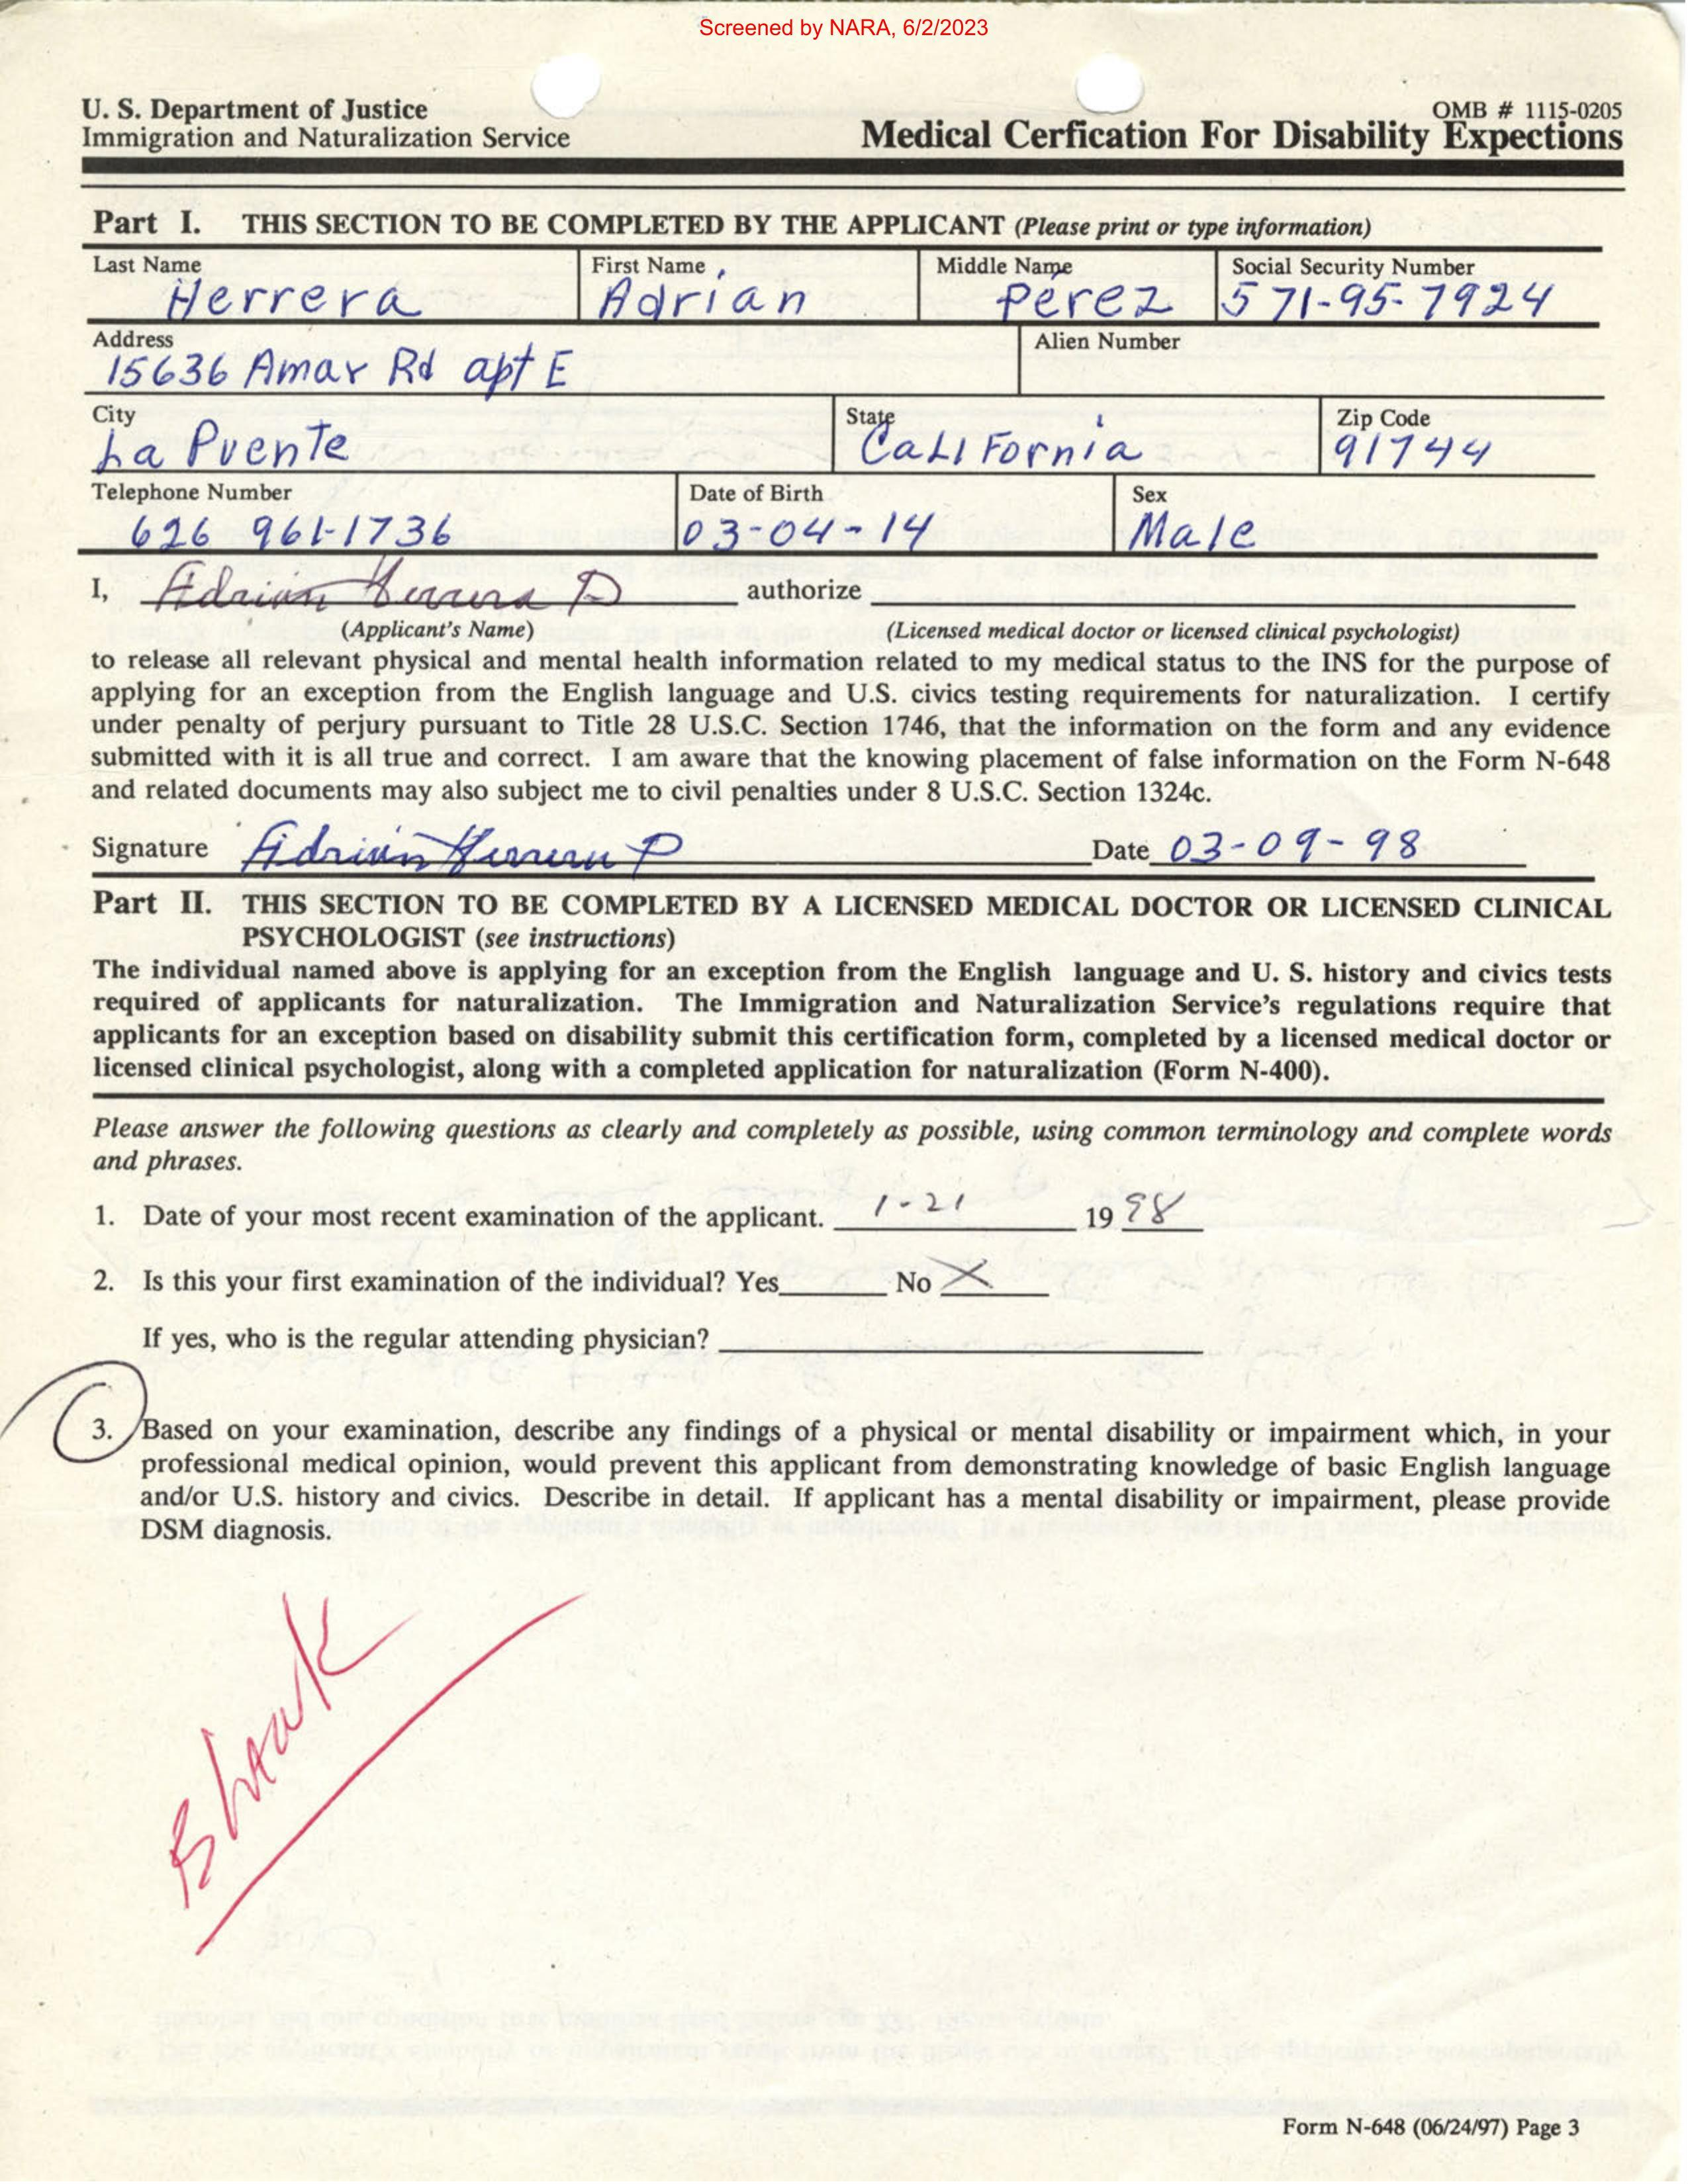 Screened by NARA, 6/2/2023
U. S. Department of Justice
Immigration and Naturalization Service
OMB # 1115-0205
Medical Cerfication For Disability Expections
Part I. THIS SECTION TO BE COMPLETED BY THE APPLICANT (Please print or type information)
Last Name First Name Middle Name Social Security Number
Herrera Adrian Perez 571-95-7924
Address Alien Number
15636 Amar Rd apt E
City State Zip Code
La Puente CaLIFornia 91744
Telephone Number Date of Birth Sex
626 961-1736 03-04-14 Male
I, Adrian Herrera P authorize
(Applicant's Name) (Licensed medical doctor or licensed clinical psychologist)
to release all relevant physical and mental health information related to my medical status to the INS for the purpose of
applying for an exception from the English language and U.S. civics testing requirements for naturalization. I certify
under penalty of perjury pursuant to Title 28 U.S.C. Section 1746, that the information on the form and any evidence
submitted with it is all true and correct. I am aware that the knowing placement of false information on the Form N-648
and related documents may also subject me to civil penalties under 8 U.S.C. Section 1324c.
Signature Adrian Herrera P Date 03-09-98
Part II. THIS SECTION TO BE COMPLETED BY A LICENSED MEDICAL DOCTOR OR LICENSED CLINICAL
PSYCHOLOGIST (see instructions)
The individual named above is applying for an exception from the English language and U. S. history and civics tests
required of applicants for naturalization. The Immigration and Naturalization Service's regulations require that
applicants for an exception based on disability submit this certification form, completed by a licensed medical doctor or
licensed clinical psychologist, along with a completed application for naturalization (Form N-400).
Please answer the following questions as clearly and completely as possible, using common terminology and complete words
and phrases.
1. Date of your most recent examination of the applicant. 1-21 19 98
2. Is this your first examination of the individual? Yes No X
If yes, who is the regular attending physician?
3. Based on your examination, describe any findings of a physical or mental disability or impairment which, in your
professional medical opinion, would prevent this applicant from demonstrating knowledge of basic English language
and/or U.S. history and civics. Describe in detail. If applicant has a mental disability or impairment, please provide
DSM diagnosis.
Blank
Form N-648 (06/24/97) Page 3